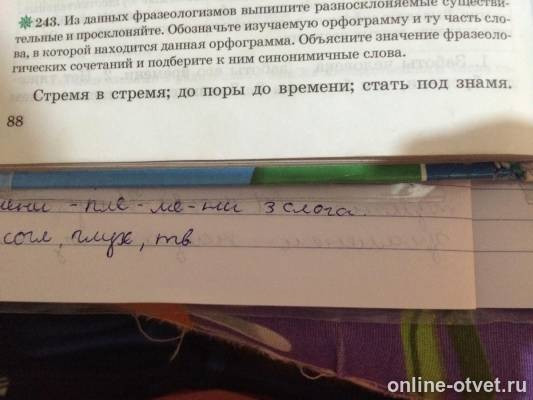 243. Из данных фразеологизмов выпишите разносклоняемые существи-
тельные и просклоняйте. Обозначьте изучаемую орфограмму и ту часть сло-
ва, в которой находится данная орфограмма. Объясните значение фразеоло-
гических сочетаний и подберите к ним синонимичные слова.
Стремя в стремя; до поры до времени; стать под знамя.
88
ени - пле - ме - ни 3 слога.
согл, глух, тв
online-otvet.ru